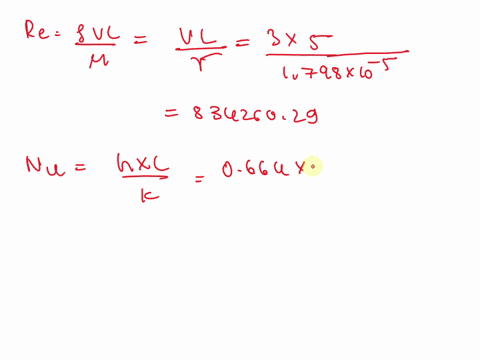 Re = ρVL/μ = VL/ν = 3 × 5/1.798×10⁻⁵
= 834260.29
Nu = h×L/k = 0.664 ×